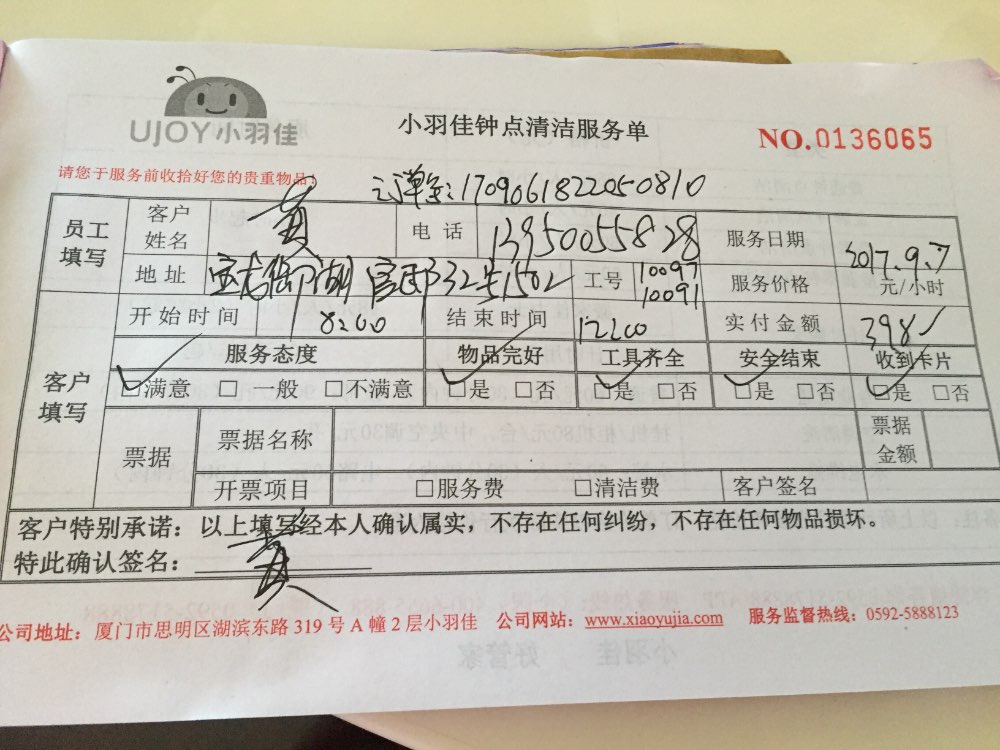 UJOY小羽佳
小羽佳钟点清洁服务单
NO.0136065
请您于服务前收拾好您的贵重物品!
订单号:1709061822050810
员工填写 客户姓名 黄 电话 13950055828 服务日期 2017.9.7
地址 宝龙御湖官邸32号1502 工号 10097 10091 服务价格 元/小时
开始时间 8:00 结束时间 12:00 实付金额 398
客户填写 服务态度 物品完好 工具齐全 安全结束 收到卡片
☑满意 □一般 □不满意 ☑是 □否 ☑是 □否 ☑是 □否 ☑是 □否
票据 票据名称 票据金额
开票项目 □服务费 □清洁费 客户签名
客户特别承诺:以上填写经本人确认属实,不存在任何纠纷,不存在任何物品损坏。
特此确认签名: 黄
公司地址:厦门市思明区湖滨东路319号A幢2层小羽佳 公司网站:www.xiaoyujia.com 服务监督热线:0592-5888123